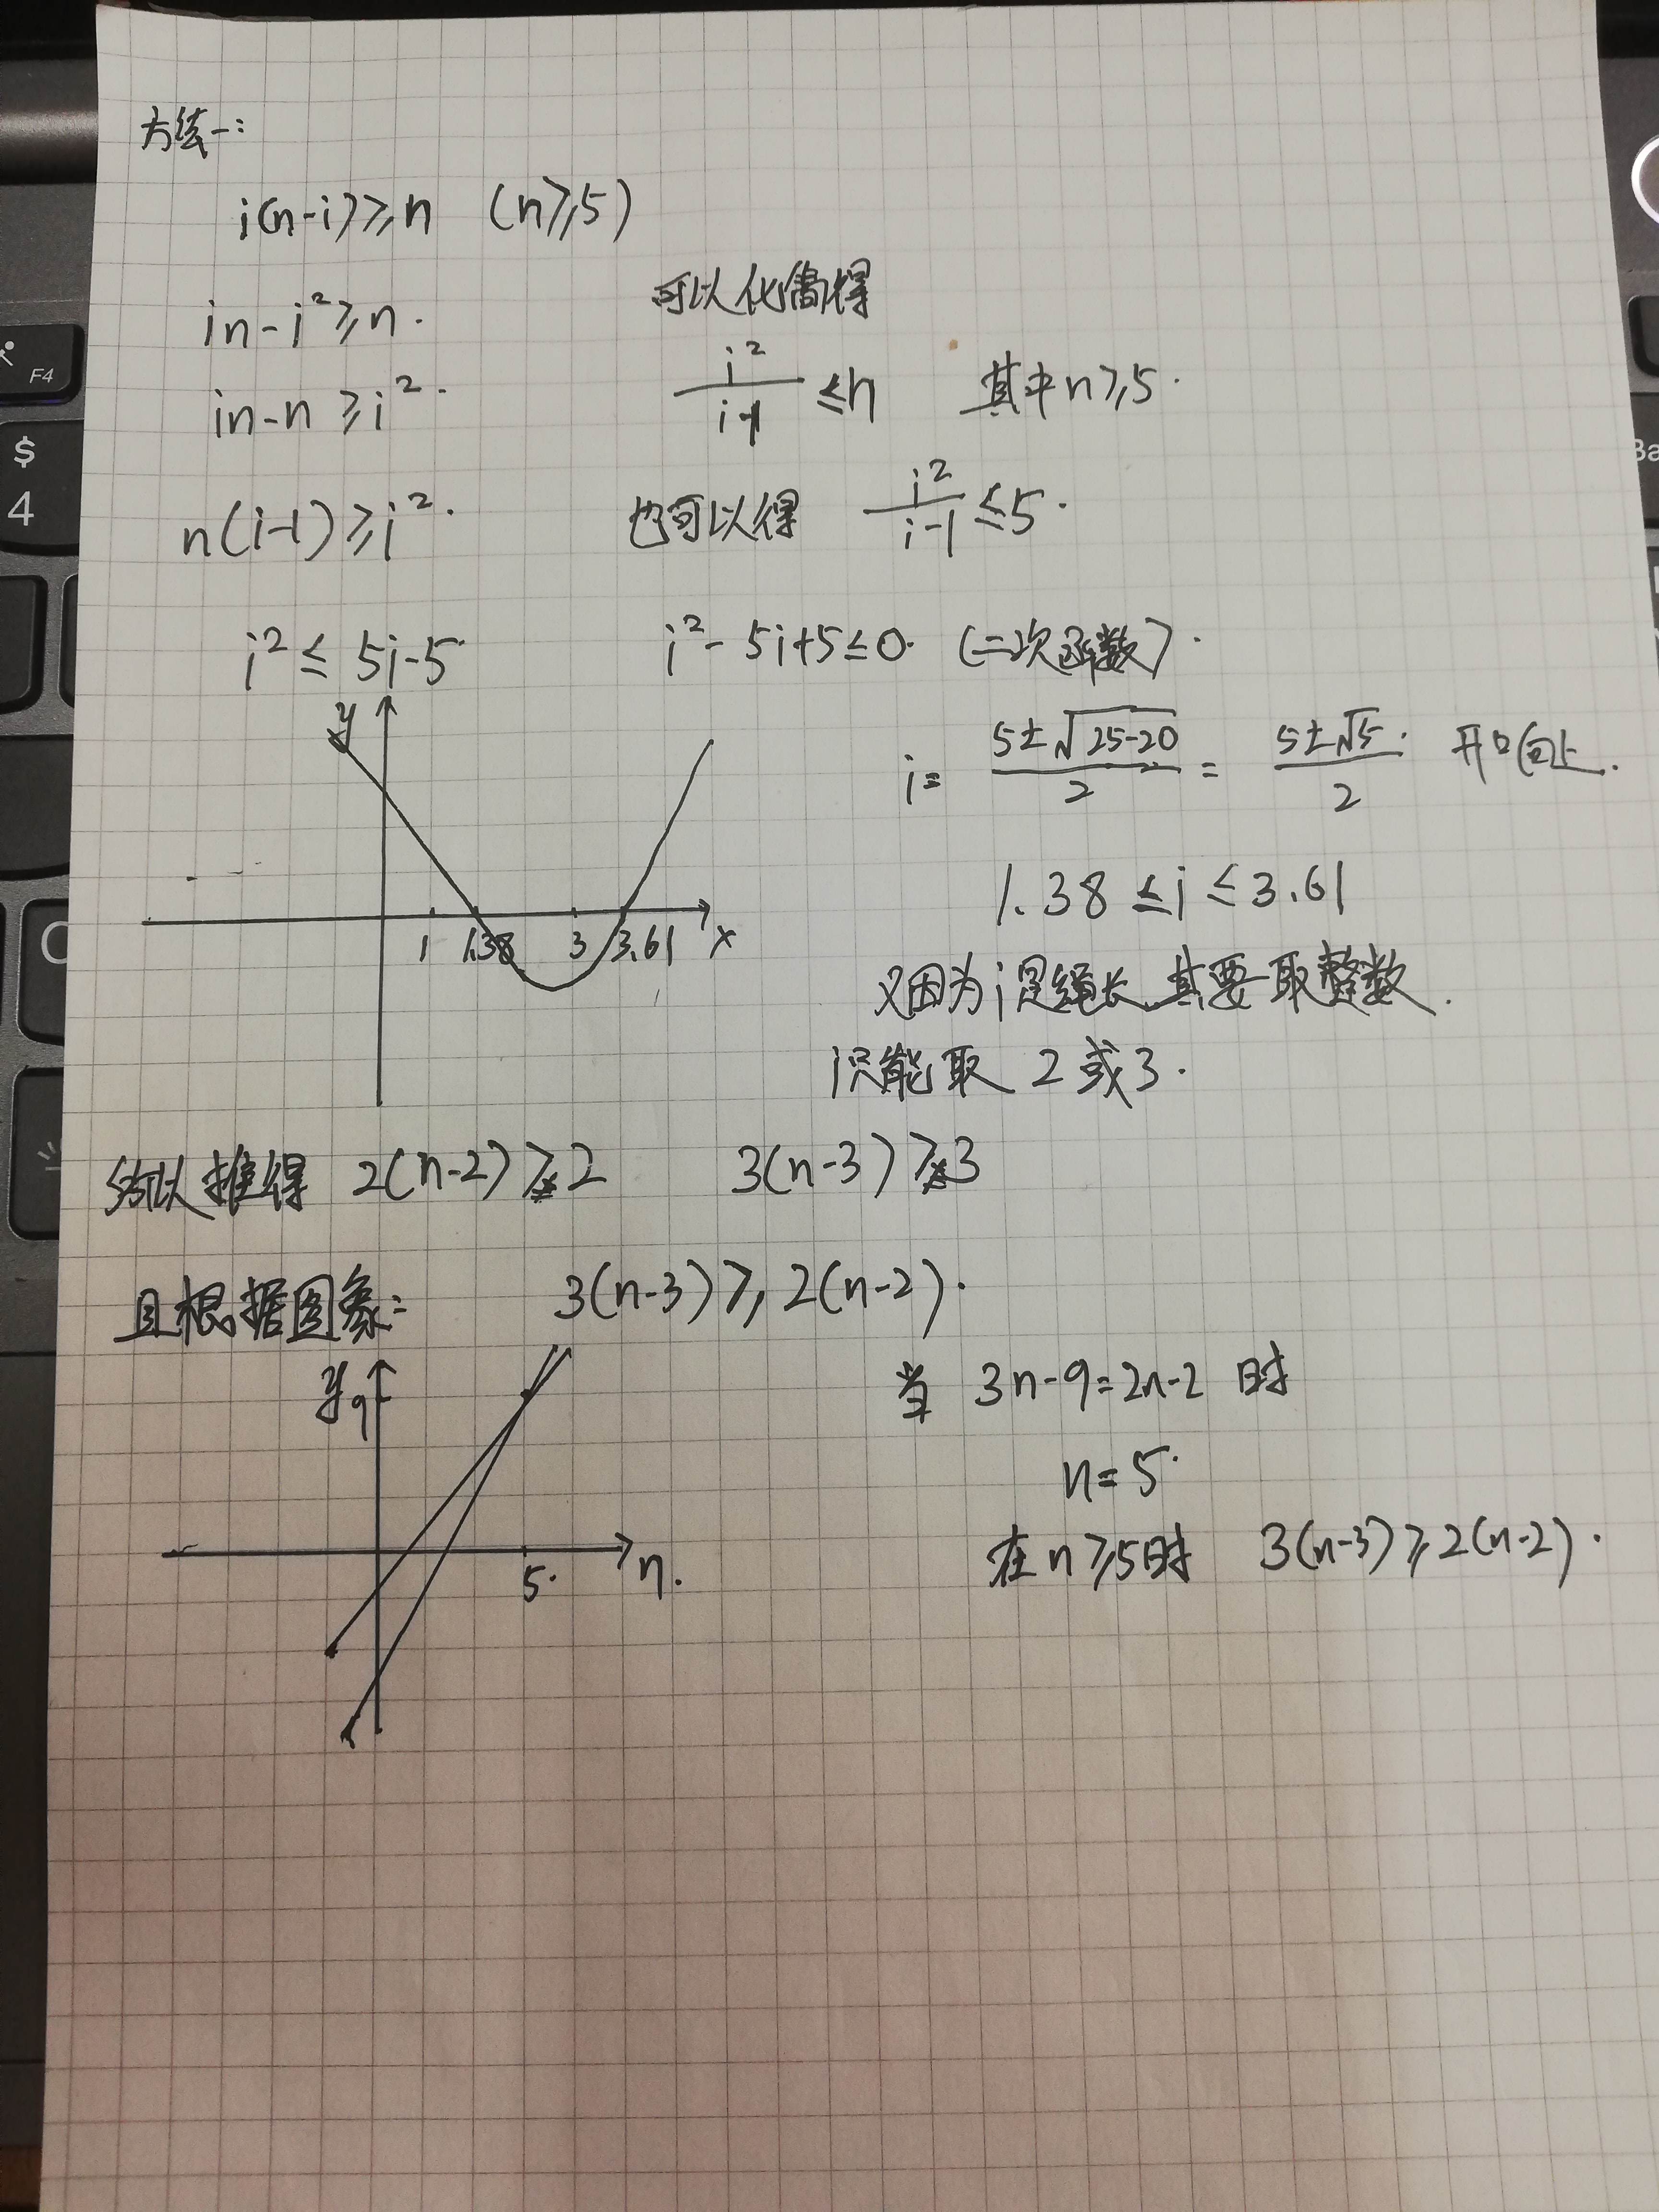 方法一:
i(n-i)≥n (n≥5)
in-i²≥n. 可以化简得
in-n≥i². i²/(i-1)≤n 其中n≥5.
n(i-1)≥i². 也可以得 i²/(i-1)≤5.
i²≤5i-5 i²-5i+5≤0. (二次函数).
i= (5±√(25-20))/2 = (5±√5)/2. 开口向上.
y
1 1.38 3 3.61 x
1.38≤i≤3.61
又因为i是绳长,其要取整数.
i只能取2或3.
所以推得 2(n-2)≥2 3(n-3)≥3
且根据图象: 3(n-3)≥2(n-2).
y 9
5. n.
当 3n-9=2n-2 时
n=5.
在n≥5时 3(n-3)≥2(n-2).
F4
$
4
C
Ba